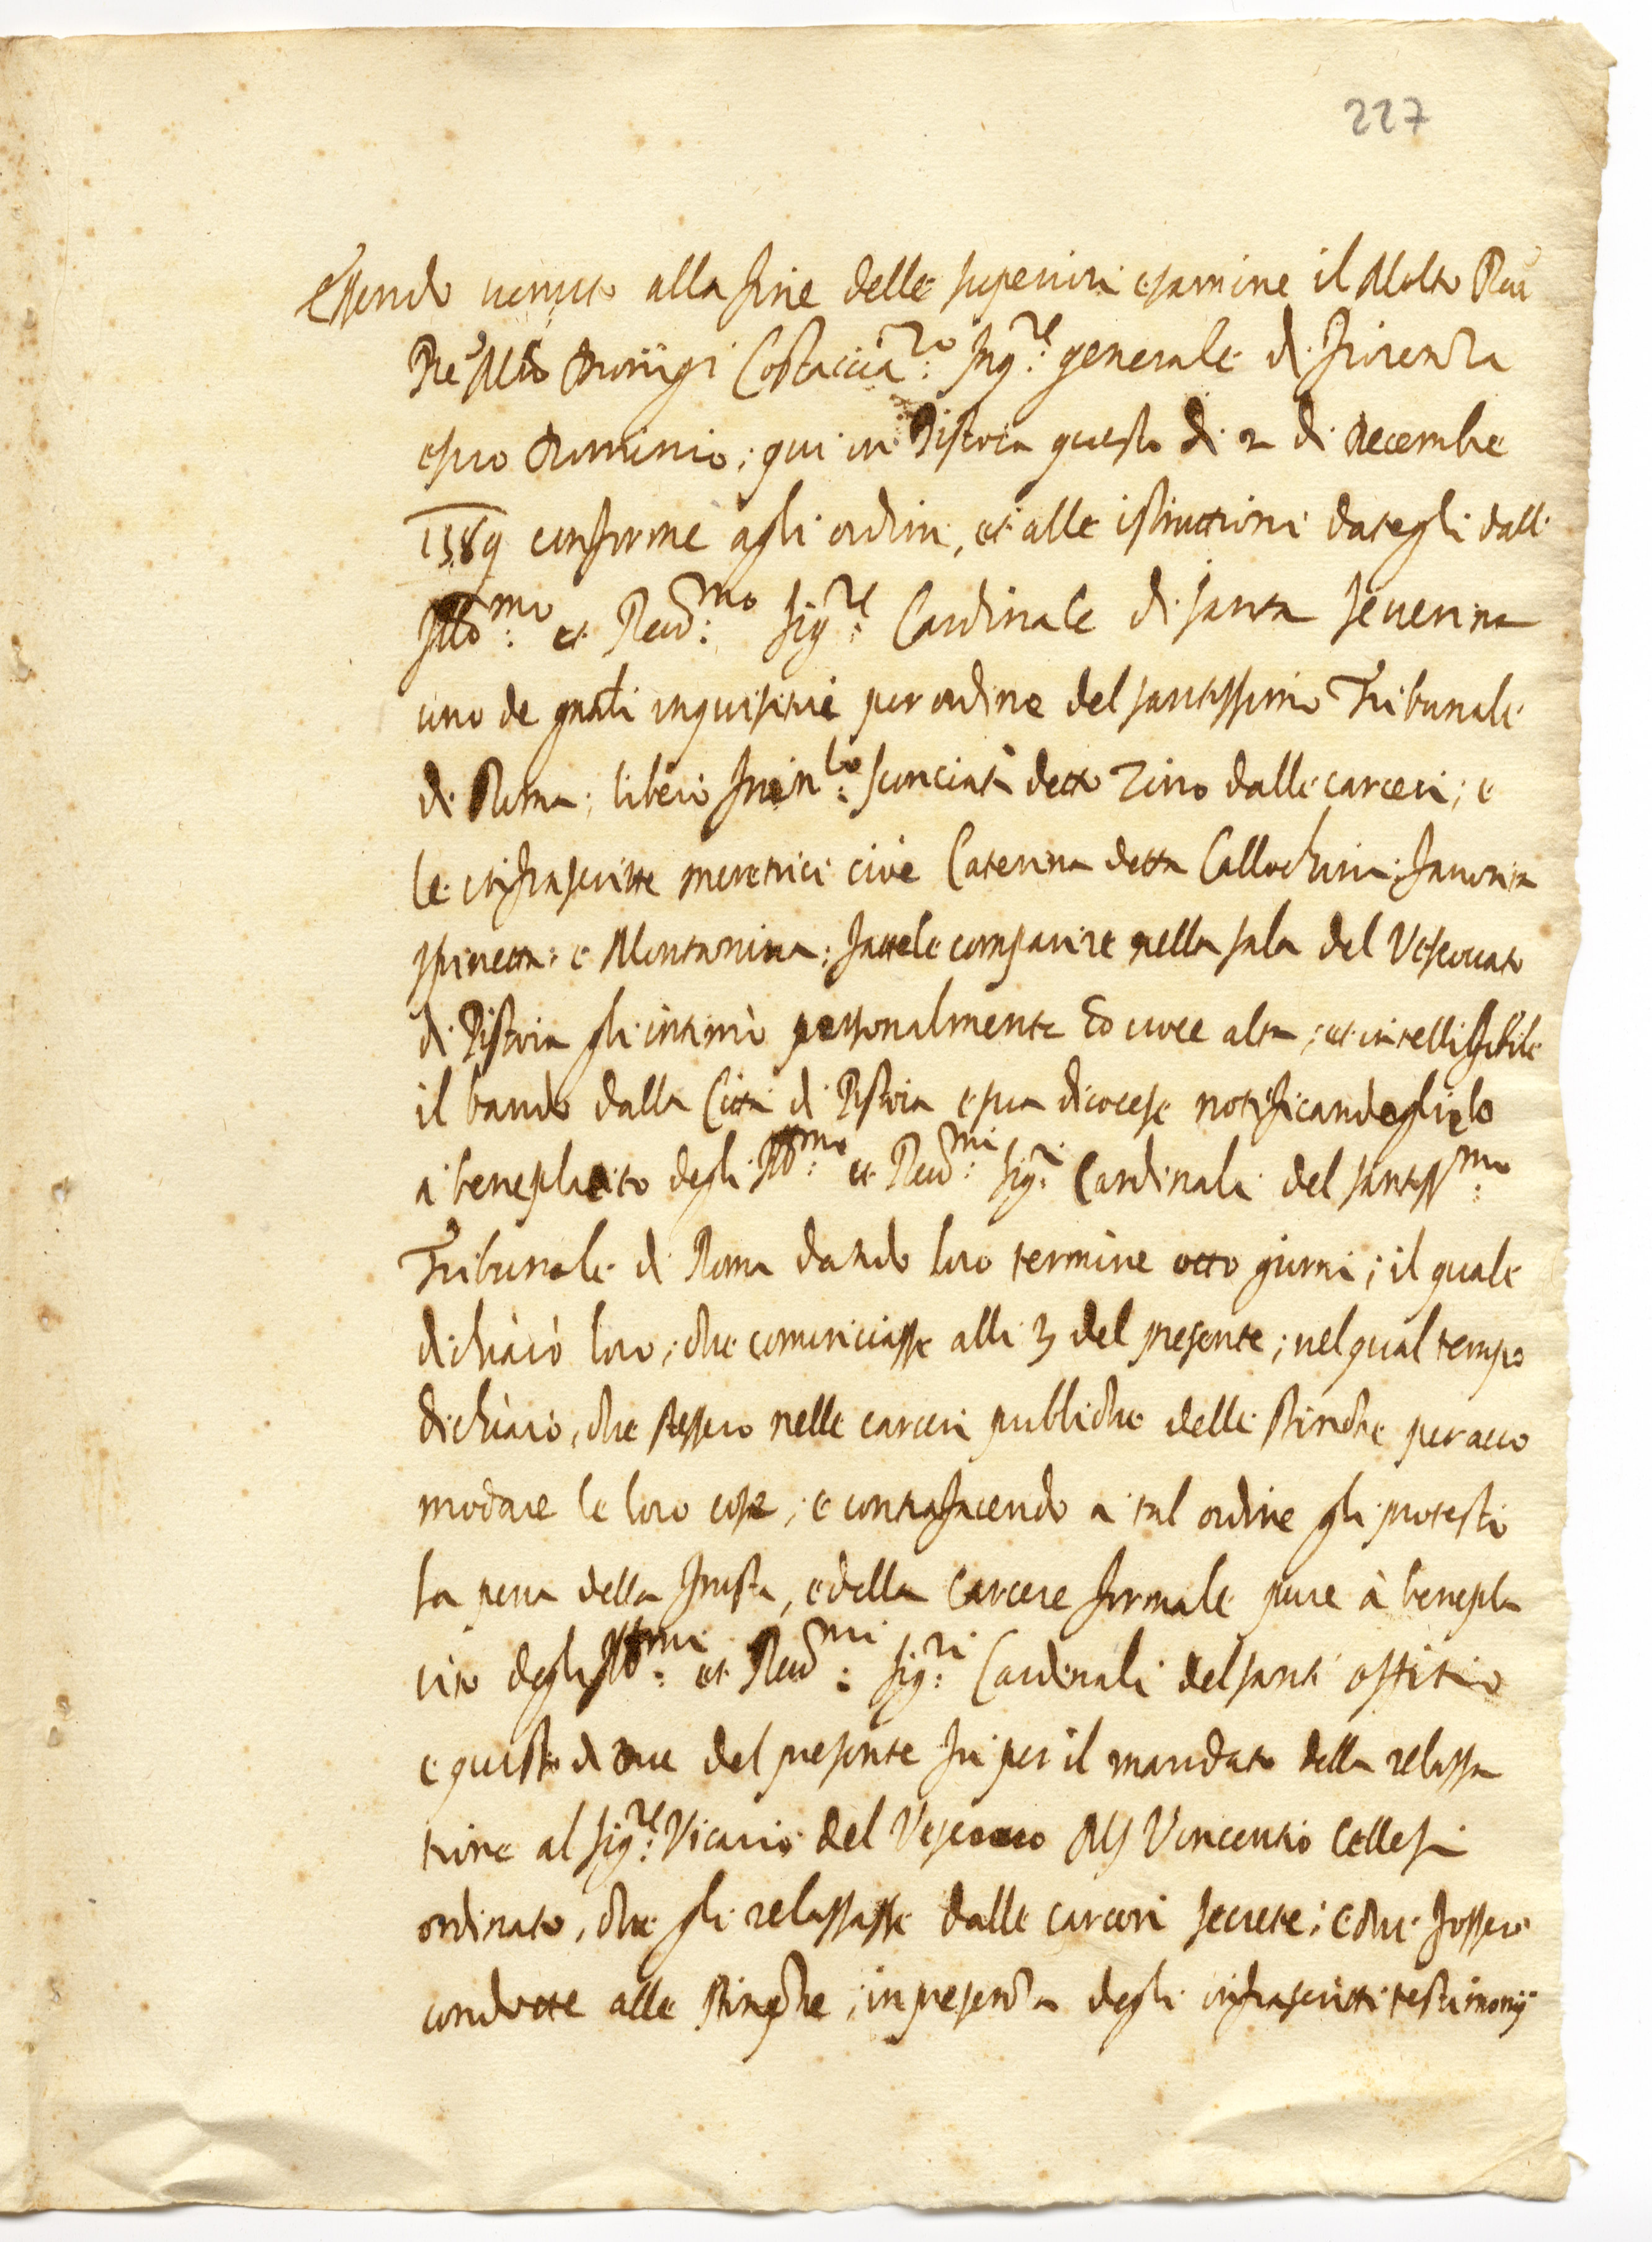 227
Essendo venuto alla fine delle superiori esamine il Molto Reu
Pre Mro Dionigi Costaccia:ro Inq:re generale di Fiorenza
e suo Dominio; qui in Pistoia questo di 2 di Decembre
1589 conforme agli ordini, et alle istruttioni dategli dall
Illo:mo et Reud:mo Sig:re Cardinale di Santa Seuerina
uno de gnali inquisitori per ordine del santissimo Tribunale
di Roma; liberò sconciati detto Zino dalle carceri; e
le infrascritte meretrici cioè Caterina detta Callochina:
Spinetta: e Montanina; fattele comparire nella sala del Vescouato
di Pistoia gli intimò personalmente ed uoce alta, et intelligibile
il bando dalla Città di Pistoia e sua diocese notificandoglielo
a beneplacito degli Illo:mi et Reud:mi Sig:ri Cardinali del santiss:mo
Tribunale di Roma dando loro termine otto giorni; il quale
dichiarò loro, che cominciasse alli 3 del presente; nel qual tempo
dichiarò, che stessero nelle carceri publiche delle stinche per acco
modare le loro cose; e contrafacendo a tal ordine gli protestò
la pena della frusta, e della carcere formale pure à benepla
cito degli Illo:mi et Reud:mi Sig:ri Cardinali del sant' offitio
e questo di due del presente fu per il mandato della relassa
tione al Sig:re Vicario del Vescouo Ms Vincentio Cellesi
ordinato, che gli relassasse dalle carceri secrete; e che fossero
condotte alle stinche; in presenza degli infrascritti testimonij